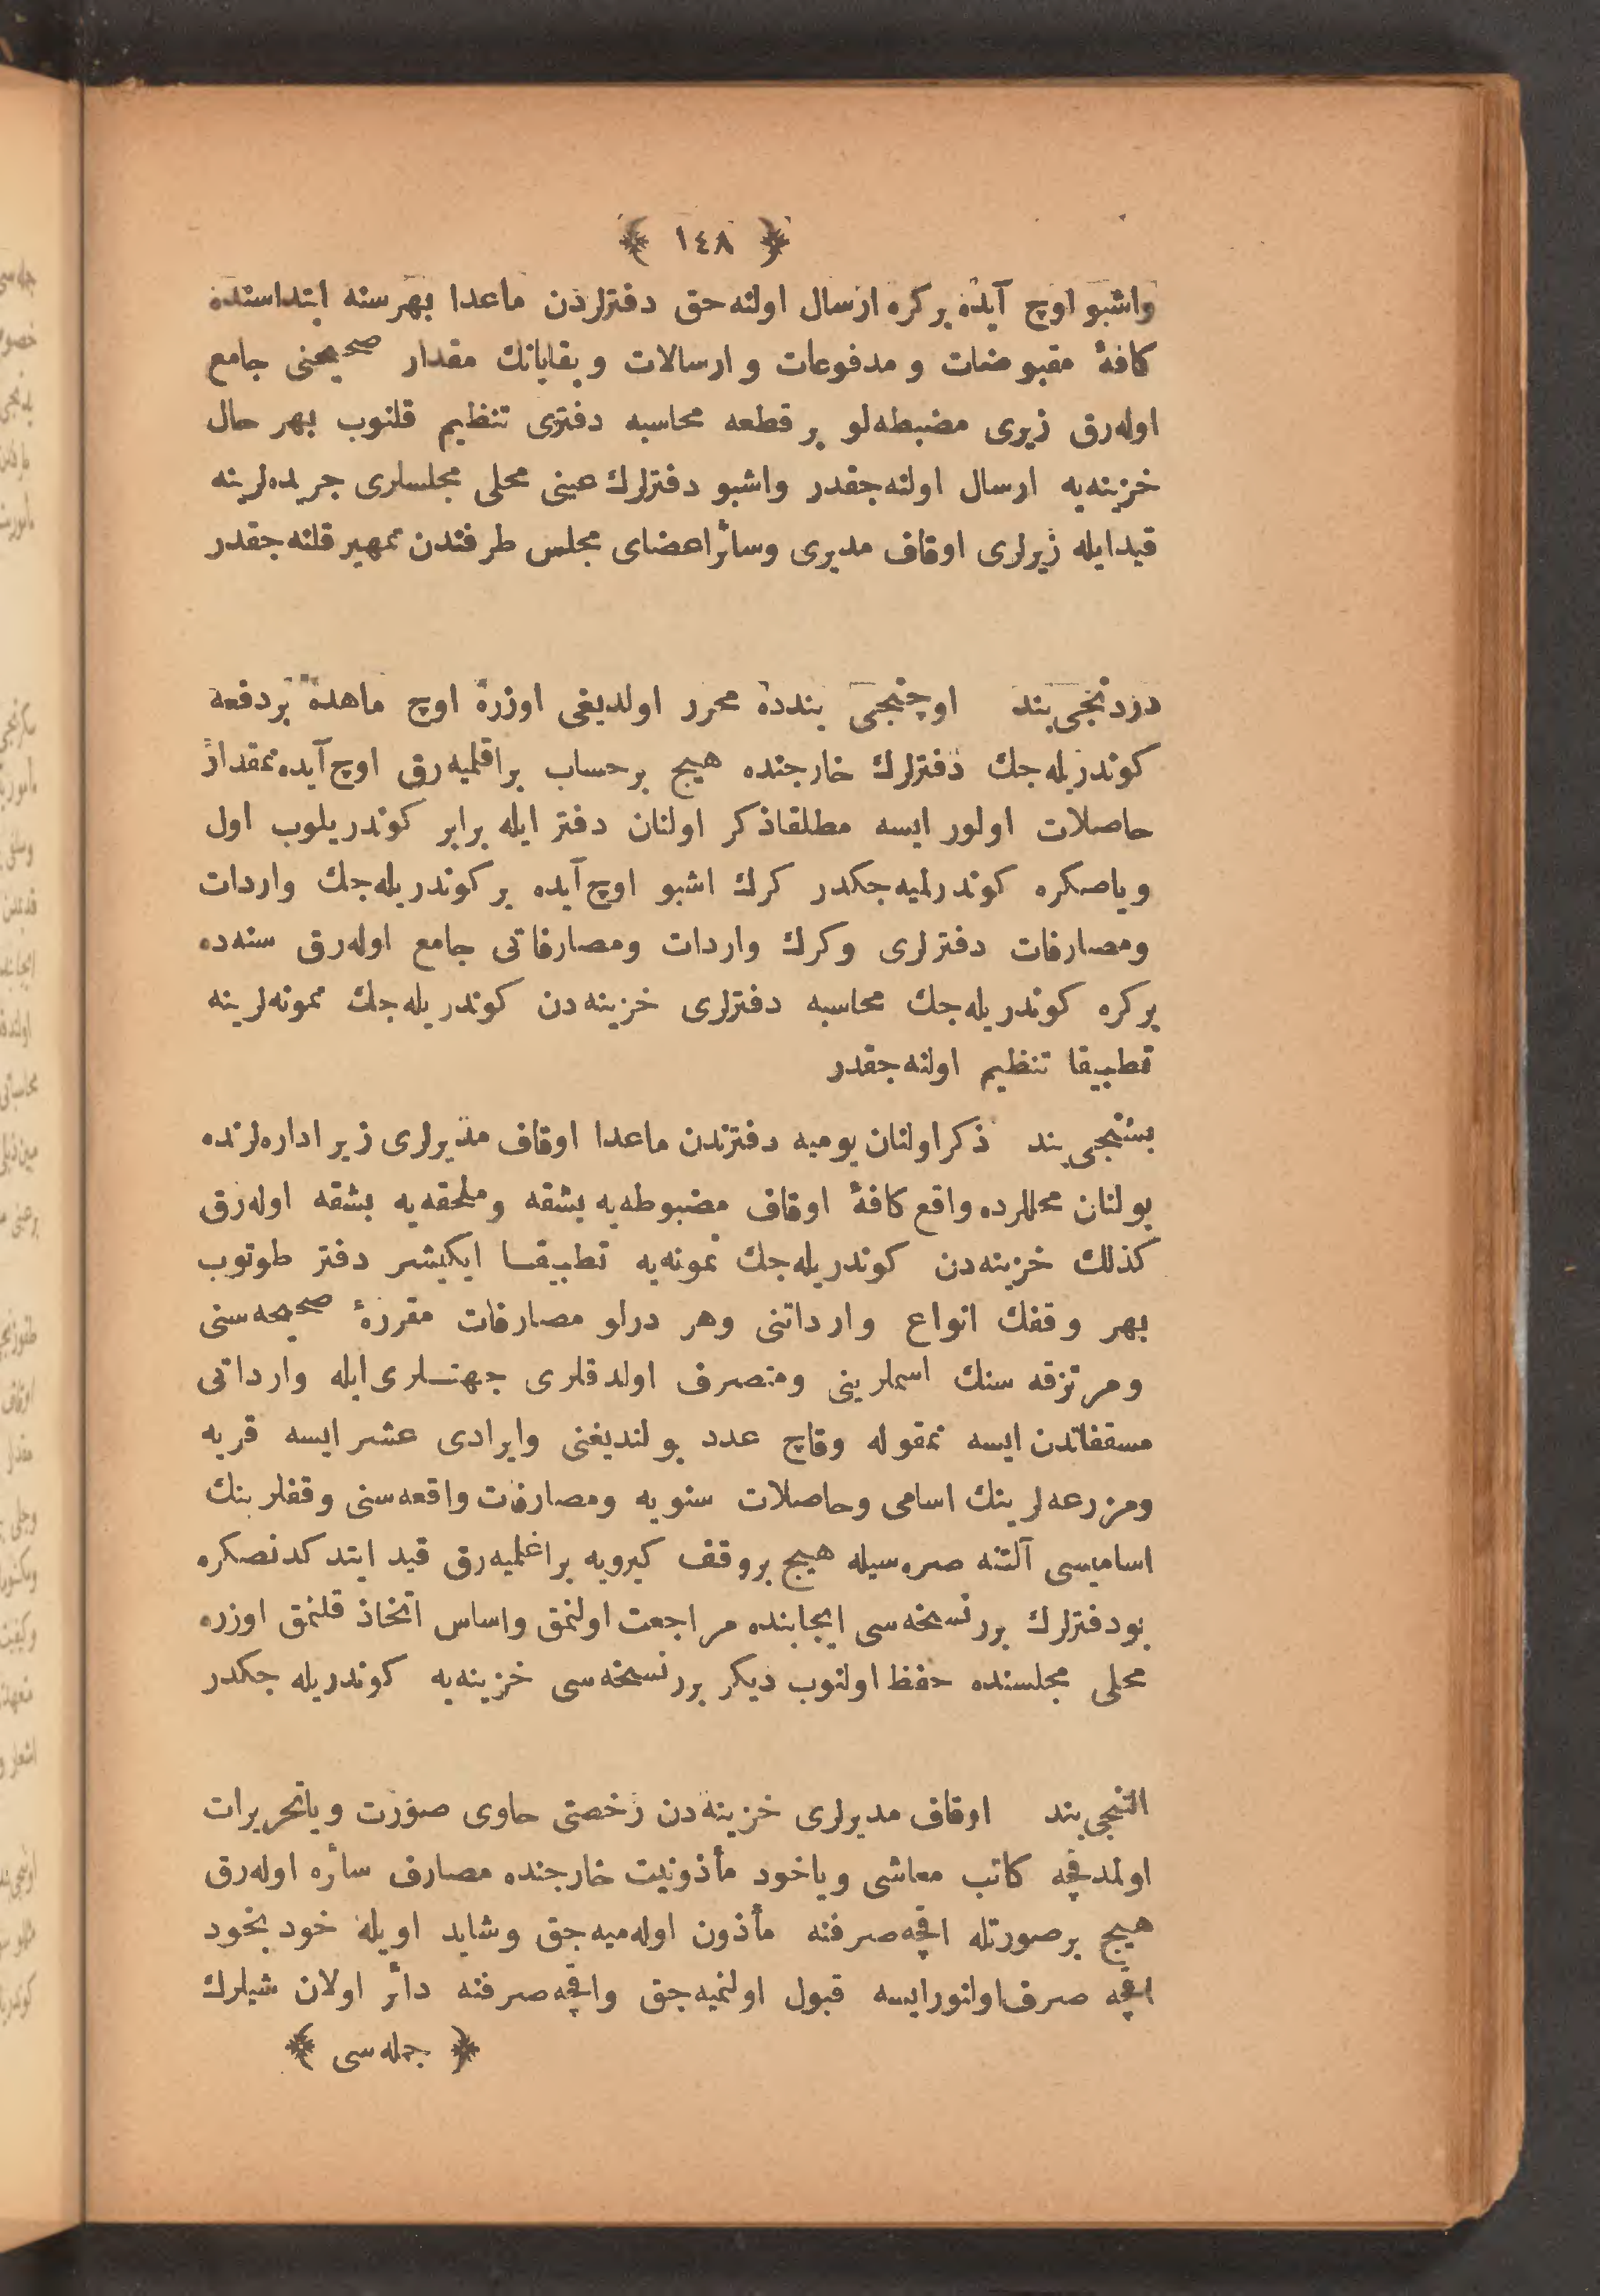 ﴿ ١٤٨ ﴾
واشبو اوچ آیده بركره ارسال اولنه‌جق دفترلردن ماعدا بهرسنه ابتداسنده
كافهٔ مقبوضات و مدفوعات و ارسالات و بقایانك مقدار صحیحنی جامع
اوله‌رق زیری مضبطه‌لو بر قطعه محاسبه دفتری تنظیم قلنوب بهر حال
خزینه‌یه ارسال اولنه‌جقدر واشبو دفترلرك عینی محلی مجلسلری جریده‌لرینه
قیدایله زیرلری اوقاف مدیری وسائر اعضای مجلس طرفندن تمهیر قلنه‌جقدر
دردنجی بند اوچنجی بندده محرر اولدیغی اوزره اوچ ماهده بردفعه
كوندریله‌جك دفترلرك خارجنده هیچ برحساب براقلمیه‌رق اوچ آیده نمقدار
حاصلات اولور ایسه مطلقاذكر اولنان دفتر ایله برابر كوندریلوب اول
ویاصكره كوندرلمیه‌جكدر كرك اشبو اوچ آیده بر كوندریله‌جك واردات
ومصارفات دفترلری وكرك واردات ومصارفاتی جامع اوله‌رق سنه‌ده
بركره كوندریله‌جك محاسبه دفترلری خزینه‌دن كوندریله‌جك نمونه‌لرینه
تطبیقا تنظیم اولنه‌جقدر
بشنجی بند ذكراولنان یومیه دفترندن ماعدا اوقاف مدیرلری زیر اداره‌لرنده
بولنان محللرده واقع كافهٔ اوقاف مضبوطه‌یه بشقه وملحقه‌یه بشقه اوله‌رق
كذلك خزینه‌دن كوندریله‌جك نمونه‌یه تطبیقا ایكیشر دفتر طوتوب
بهر وقفك انواع وارداتنی وهر درلو مصارفات مقررهٔ صحیحه‌سنی
ومرتزقه سنك اسملرینی ومتصرف اولدقلری جهتلری ایله وارداتی
مسقفاتدن ایسه نمقوله وقاچ عدد بولندیغنی وایرادی عشر ایسه قریه
ومزرعه‌لرینك اسامی وحاصلات سنویه ومصارفات واقعه‌سنی وقفلرینك
اسامیسی آلتنه صره‌سیله هیچ بروقف كیرویه براغلمیه‌رق قید ایتدكدنصكره
بودفترلرك بررنسخه‌سی ایجابنده مراجعت اولنمق واساس اتخاذ قلنمق اوزره
محلی مجلسنده حفظ اولنوب دیكر بررنسخه‌سی خزینه‌یه كوندریله جكدر
التنجی بند اوقاف مدیرلری خزینه‌دن رخصتی حاوی صورت ویاتحریرات
اولمدقجه كاتب معاشی ویاخود مأذونیت خارجنده مصارف سائره اوله‌رق
هیچ برصورتله اقچه‌صرفنه مأذون اوله‌میه‌جق وشاید اویله خودبخود
اقچه صرف اولنورایسه قبول اولنمیه‌جق واقچه‌صرفنه دائر اولان شیلرك
﴿ جمله‌سی ﴾